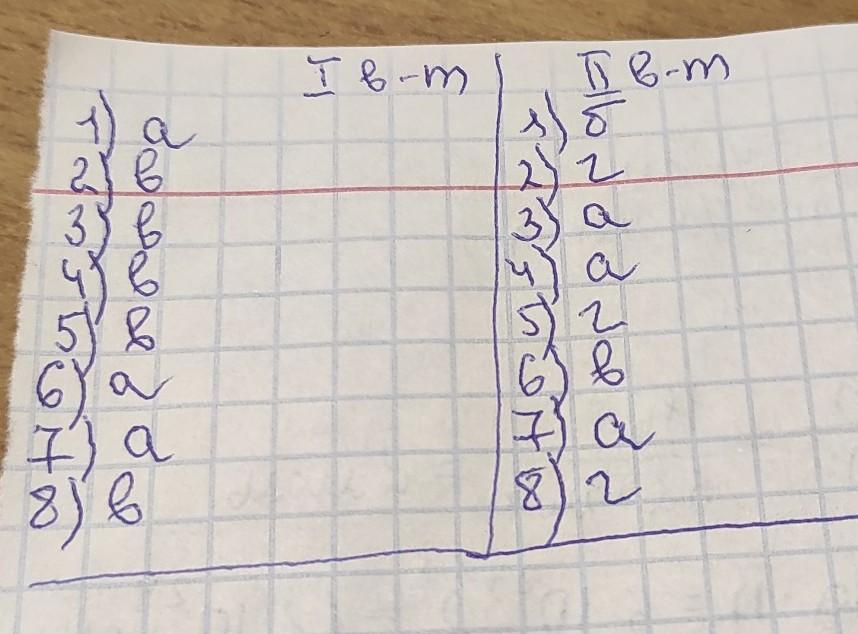 I в-т
1) а
2) в
3) в
4) в
5) в
6) а
7) а
8) в
II в-т
1) б
2) г
3) а
4) а
5) г
6) в
7) а
8) г